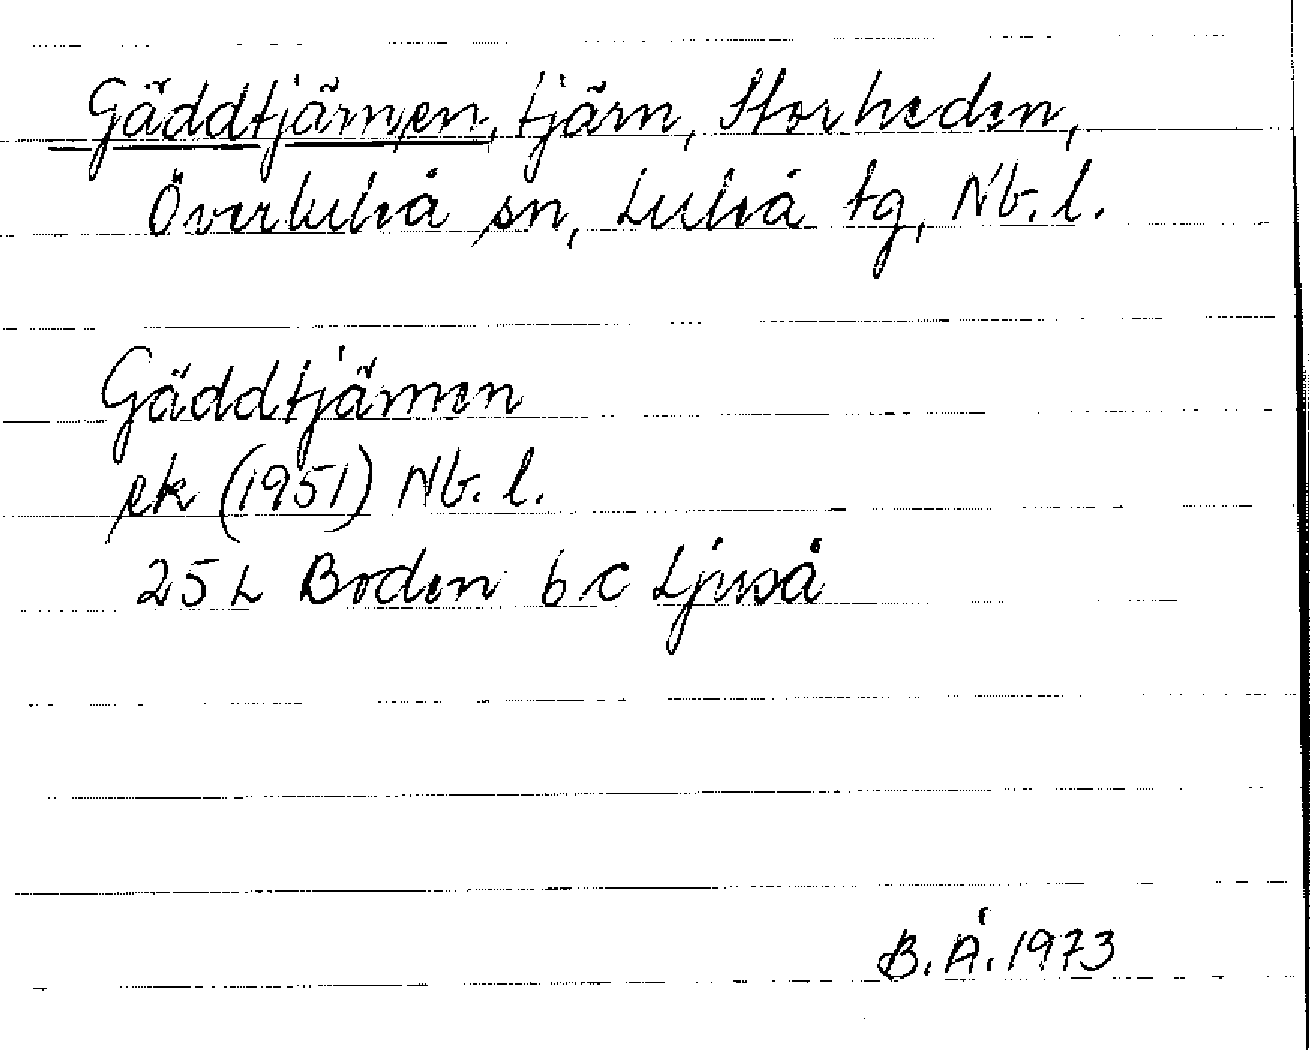 Gäddtjärnen, tjärn, Storheden,
Överluleå sn, Luleå tg, Nb. l.
Gäddtjärnen
ek (1951) Nb. l.
25 L Boden 6 c Ljuså
B. Å. 1973